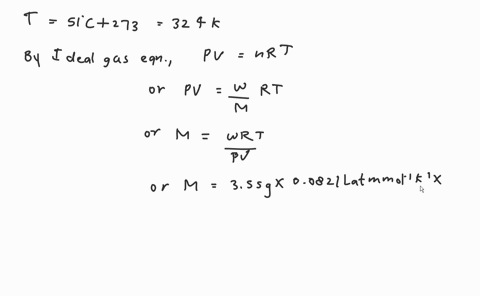 T = 51°C + 273 = 324 K
By Ideal gas eqn., PV = nRT
or PV = W/M RT
or M = WRT/PV
or M = 3.55g X 0.0821 L atm mol⁻¹ K⁻¹ X